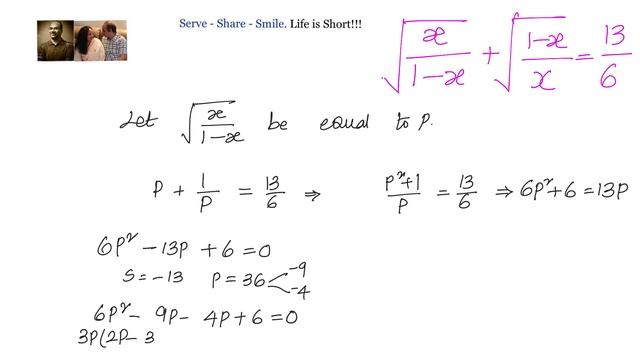 Serve - Share - Smile. Life is Short!!!
√(x/(1-x)) + √((1-x)/x) = 13/6
Let √(x/(1-x)) be equal to P.
P + 1/P = 13/6 ⇒ (P²+1)/P = 13/6 ⇒ 6P²+6 = 13P
6P² - 13P + 6 = 0
S = -13 P = 36 < -9 -4
6P² - 9P - 4P + 6 = 0
3P(2P - 3